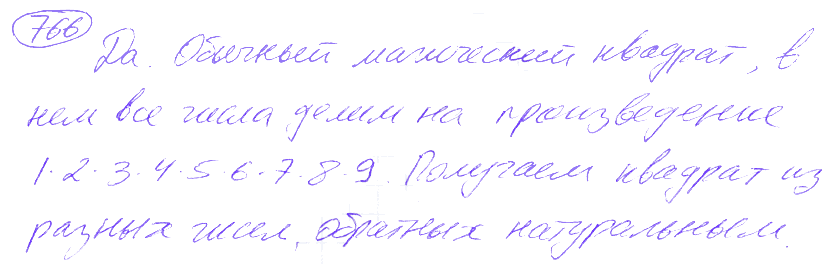 766
Да. Обычный магический квадрат, в
нем все числа делим на произведение
1·2·3·4·5·6·7·8·9. Получаем квадрат из
разных чисел, обратных натуральным.